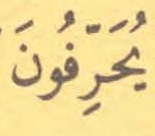 يُحَرِّفُونَ